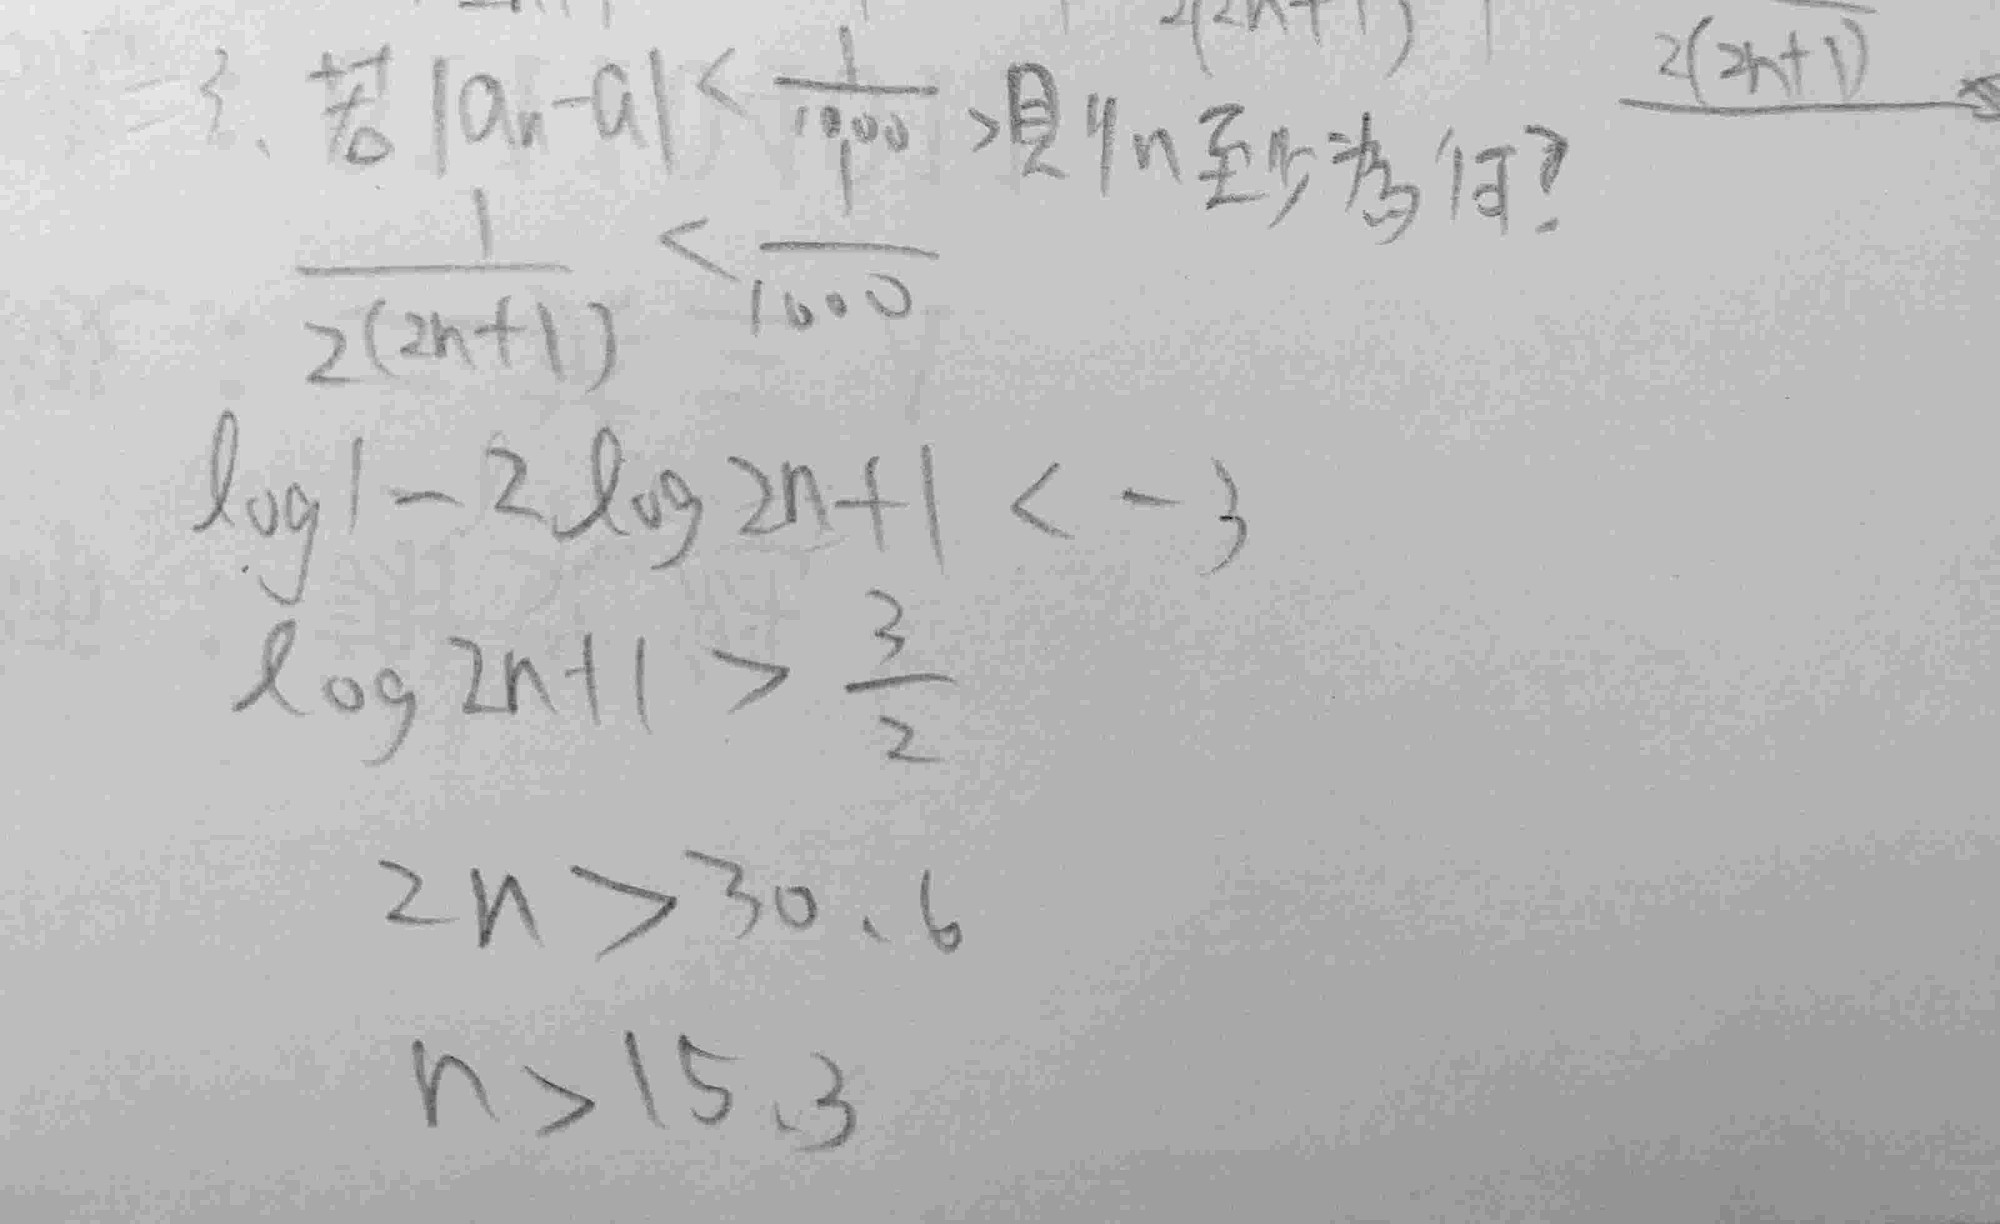 2(2n+1)
2(2n+1)
三、若|aₙ-a|<1/1000,則n至少為何?
1/2(2n+1) < 1/1000
log1-2log2n+1<-3
log2n+1>3/2
2n>30.6
n>15.3